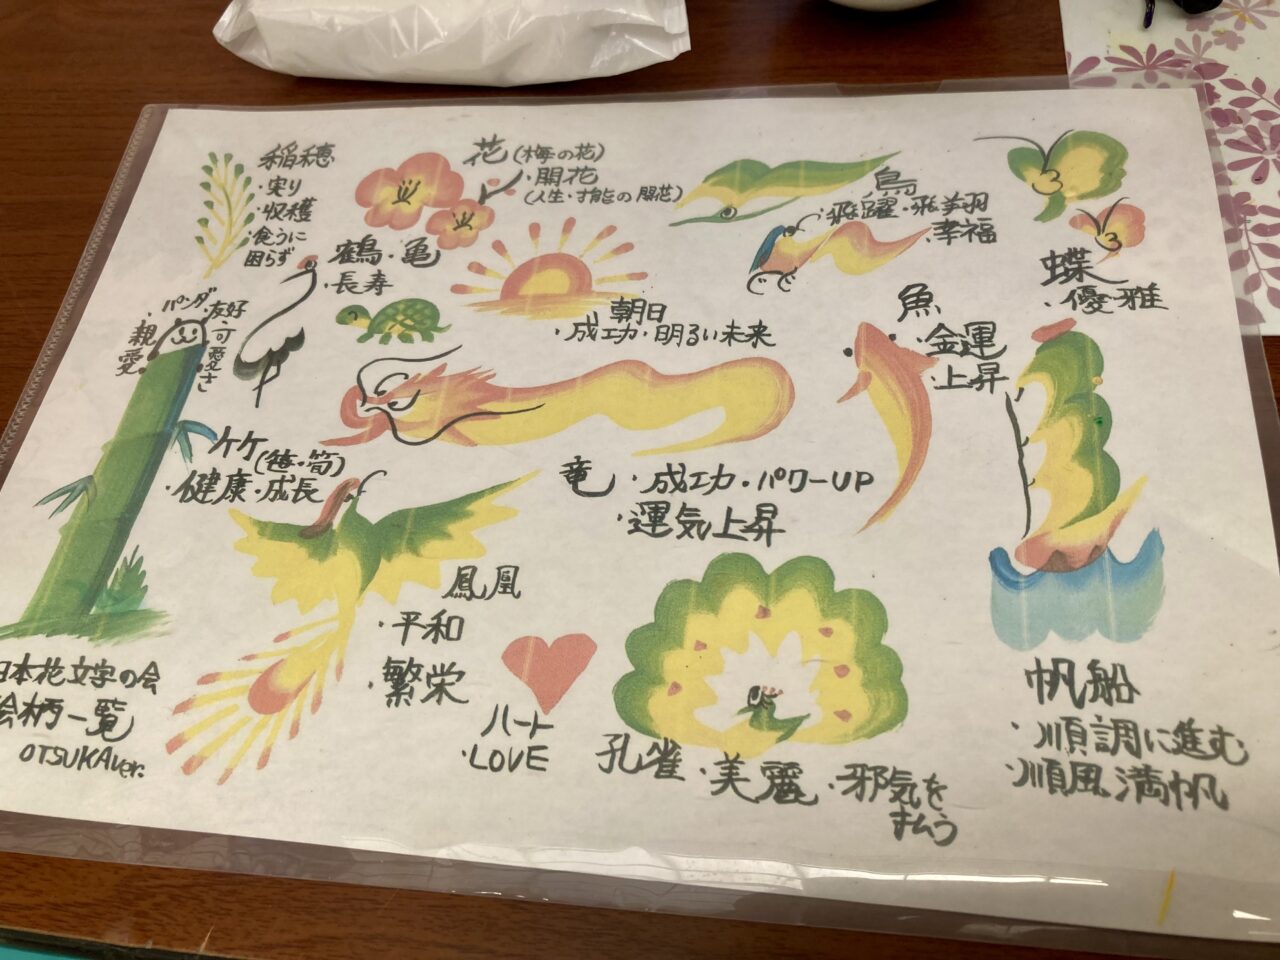 稲穂
・実り
・収穫
・食うに
困らず
花(梅の花)
・開花
(人生・才能の開花)
鳥
・飛躍・飛翔
・幸福
蝶
・優雅
鶴・亀
・長寿
朝日
・成功・明るい未来
魚
・金運
上昇
パンダ・友好
・親愛
・可愛さ
竹(笹・筍)
・健康・成長
竜・成功・パワーUP
・運気上昇
鳳凰
・平和
・繁栄
ハート
・LOVE
孔雀・美麗・邪気を
払う
帆船
・順調に進む
・順風満帆
日本花文字の会
絵柄一覧
OTSUKAver.